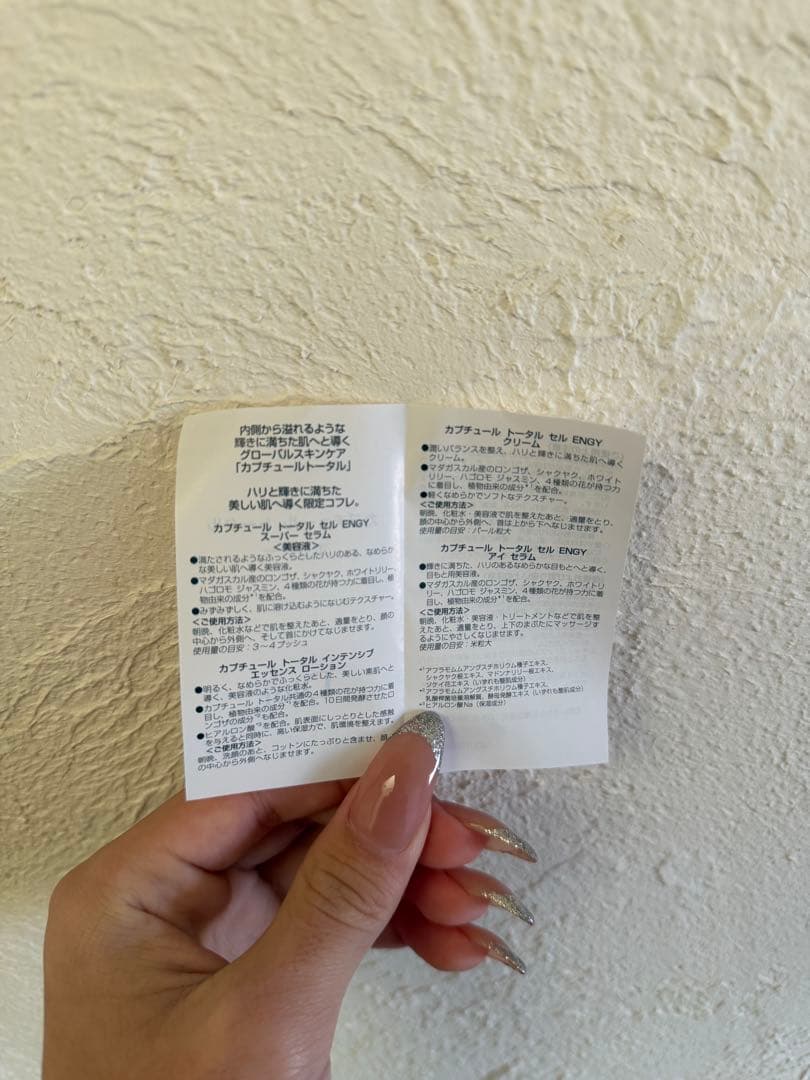 内側から溢れるような
輝きに満ちた肌へと導く
グローバルスキンケア
「カプチュールトータル」
ハリと輝きに満ちた
美しい肌へ導く限定コフレ。
カプチュール トータル セル ENGY
スーパー セラム
<美容液>
●満たされるようなふっくらとしたハリのある、なめらか
な美しい肌へ導く美容液。
●マダガスカル産のロンゴザ、シャクヤク、ホワイトリリー、
ハゴロモ ジャスミン、4種類の花が持つ力に着目し、植
物由来の成分*¹を配合。
●みずみずしく、肌に溶け込むようになじむテクスチャー。
<ご使用方法>
朝晩、化粧水などで肌を整えたあと、適量をとり、顔の
中心から外側へ、そして首にかけてなじませます。
使用量の目安:3~4プッシュ
カプチュール トータル インテンシブ
エッセンス ローション
●明るく、なめらかでふっくらとした、美しい素肌へと
導く、美容液のような化粧水。
●カプチュール トータル共通の4種類の花が持つ力に着
目し、植物由来の成分*¹を配合。10日間発酵させたロ
ンゴザの成分*²も配合。
●ヒアルロン酸*³を配合。肌表面にしっとりとした感触
を与えると同時に、高い保湿力で、肌環境を整えます。
<ご使用方法>
朝晩、洗顔のあと、コットンにたっぷりと含ませ、顔
の中心から外側へなじませます。
カプチュール トータル セル ENGY
クリーム
●潤いバランスを整え、ハリと輝きに満ちた肌へ導く
クリーム。
●マダガスカル産のロンゴザ、シャクヤク、ホワイト
リリー、ハゴロモ ジャスミン、4種類の花が持つ力
に着目し、植物由来の成分*¹を配合。
●軽くなめらかでソフトなテクスチャー。
<ご使用方法>
朝晩、化粧水・美容液で肌を整えたあと、適量をとり、
顔の中心から外側へ、首は上から下へなじませます。
使用量の目安:パール粒大
カプチュール トータル セル ENGY
アイ セラム
●輝きに満ちた、ハリのあるなめらかな目もとへと導く、
目もと用美容液。
●マダガスカル産のロンゴザ、シャクヤク、ホワイトリ
リー、ハゴロモ ジャスミン、4種類の花が持つ力に着
目し、植物由来の成分*¹を配合。
<ご使用方法>
朝晩、化粧水・美容液・トリートメントなどで肌を整
えたあと、適量をとり、上下のまぶたにマッサージす
るようにやさしくなじませます。
使用量の目安:米粒大
*¹アフラモムムアングスチホリウム種子エキス、
シャクヤク根エキス、マドンナリリー根エキス、
ソケイ花エキス(いずれも整肌成分)
*²アフラモムムアングスチホリウム種子エキス、
乳酸桿菌培養溶解質、酵母発酵エキス(いずれも整肌成分)
*³ヒアルロン酸Na(保湿成分)